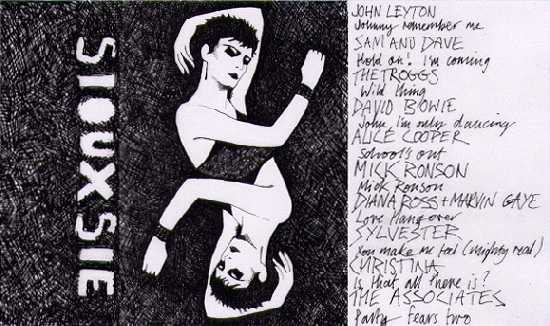 SIOUXSIE
JOHN LEYTON
Johnny remember me
SAM AND DAVE
Hold on! I'm coming
THE TROGGS
Wild thing
DAVID BOWIE
John, I'm only dancing
ALICE COOPER
School's out
MICK RONSON
Mick Ronson
DIANA ROSS + MARVIN GAYE
Love Hangover
SYLVESTER
You make me feel (mighty real)
CHRISTINA
Is that all there is?
THE ASSOCIATES
Party fears two